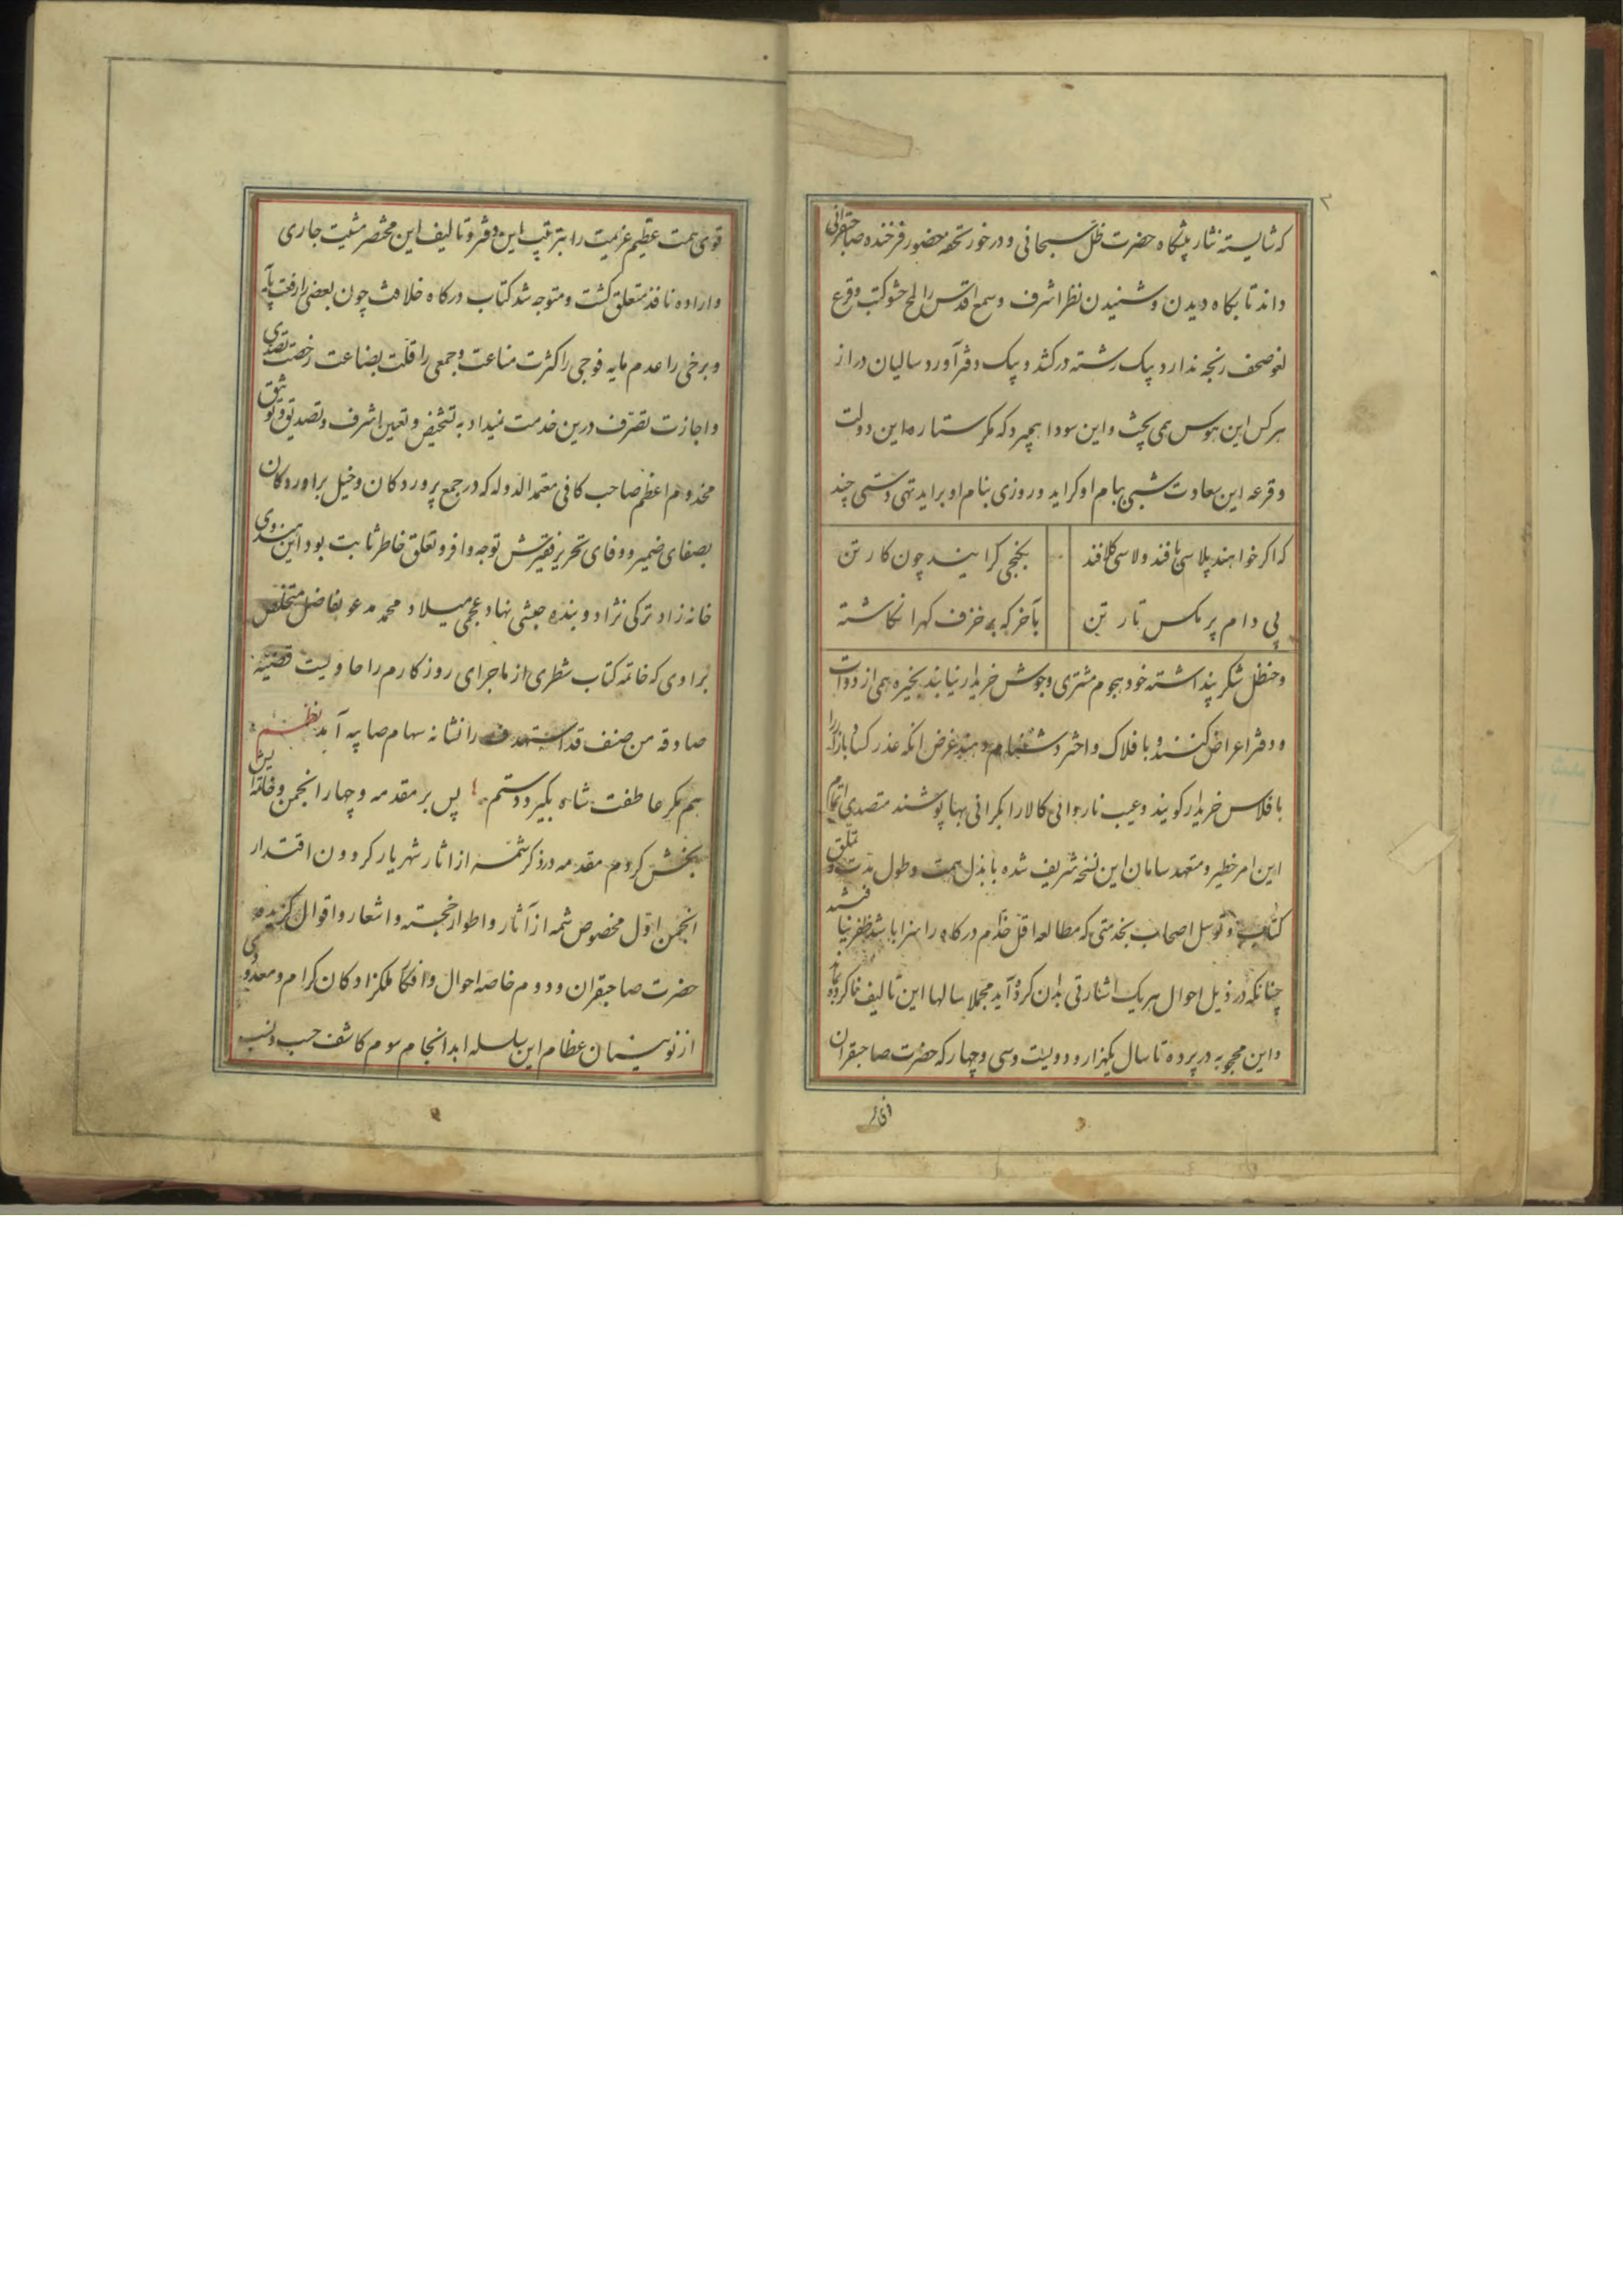 که شایسته نثار پیشگاه حضرت ظل سبحانی و در خور تحفه حضور فرخنده صاحبقرانی
داند تا بگاه دیدن و شنیدن نظر اشرف و سمع اقدس را لمح حشو کتب و قرع
لغو صحف رنجه ندارد بیک رشته در کشد و بیک دفتر آورد سالیان دراز
هر کس این هوس می پخت و این سودا همیبرد که مکر ستاره این دولت
و قرعه این سعادت شبی ببام او کراید و روزی بنام او براید تهی دستی چند
که اکر خواهند پلاسی بافند ولاسی کلافند
بکنجی کرایند چون کارتن
پی دام پر مکس تار تن
بآخر که بر خزف کهر انکاشته
و حنظل شکر پنداشته خود هجوم مشتری و جوش خریدار نیابند بخیره همی از دوات
و دفتر اعراض کنند و با فلاک و اختر دشنام دهند غرض انکه عذر کساد بازار را
بافلاس خریدار کویند و عیب ناروائی کالا را بکرانی بها پوشند متصدی اتمام
این امر خطیر و متعهد سامان این نسخه شریف شده با بذل همت و طول مدت و تملق
کتاب و توسل اصحاب بخدمتی که مطالعه اقل خدام درگاه را سزا باشد ظفر نیافتند
چنانکه در ذیل احوال هر یک اشارتی بدان کرده آید مجملا سالها این تالیف ناکرده بماند
و این محجوبه در پرده تا سال یکهزار و دویست و سی و چهار که حضرت صاحبقران
قوی همت عظیم عزیمت را بترتیب این دفتر و تالیف این مختصر مشیت جاری
و اراده نافذ متعلق کشت و متوجه شد کتاب درکاه خلافت چون بعضی را رفعت پایه
و برخی را عدم مایه فوجی را کثرت مناعت و جمعی را قلت بضاعت رخصت تصدی
و اجازت تصرف درین خدمت نمیداد به تشخیص و تعیین اشرف و تصدیق و توثیق
مخدوم اعظم صاحب کافی معتمد الدوله که در جمع پروردکان و خیل براوردکان
بصفای ضمیر و وفای تحریر فقیرش توجه وافر و تعلق خاطر ثابت بود این هندوی
خانه زاد ترکی نژاد و بنده حبشی نهاد عجمی میلاد محمد مدعو بفاضل متخلص
براوی که خاتمه کتاب شطری از ماجرای روزکارم را حاویست قضیه
صادقه من صنف قد استهدف را نشانه سهام صایبه آمد نظم
هم مکر عاطفت شاه بکیرد دستم پس بر مقدمه و چهار انجمن و خاتمه اش
بخش کردم مقدمه در ذکر شمه از اثار شهریار کردون اقتدار
انجمن اول مخصوص شمه از آثار و اطوار خجسته و اشعار و اقوال کزیده
حضرت صاحبقران و دوم خاصه احوال و افکار ملکزادکان کرام و معدودی
از نوئینان عظام این سلسله ابد انجام سوم کاشف حسب و نسب